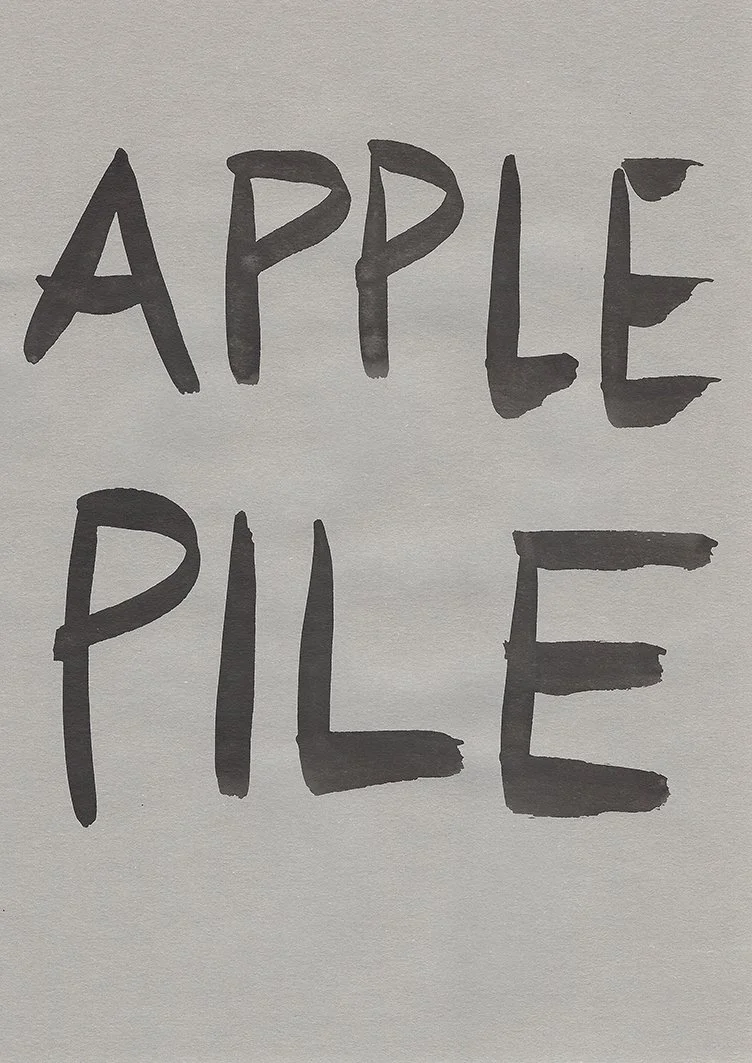 APPLE
PILE